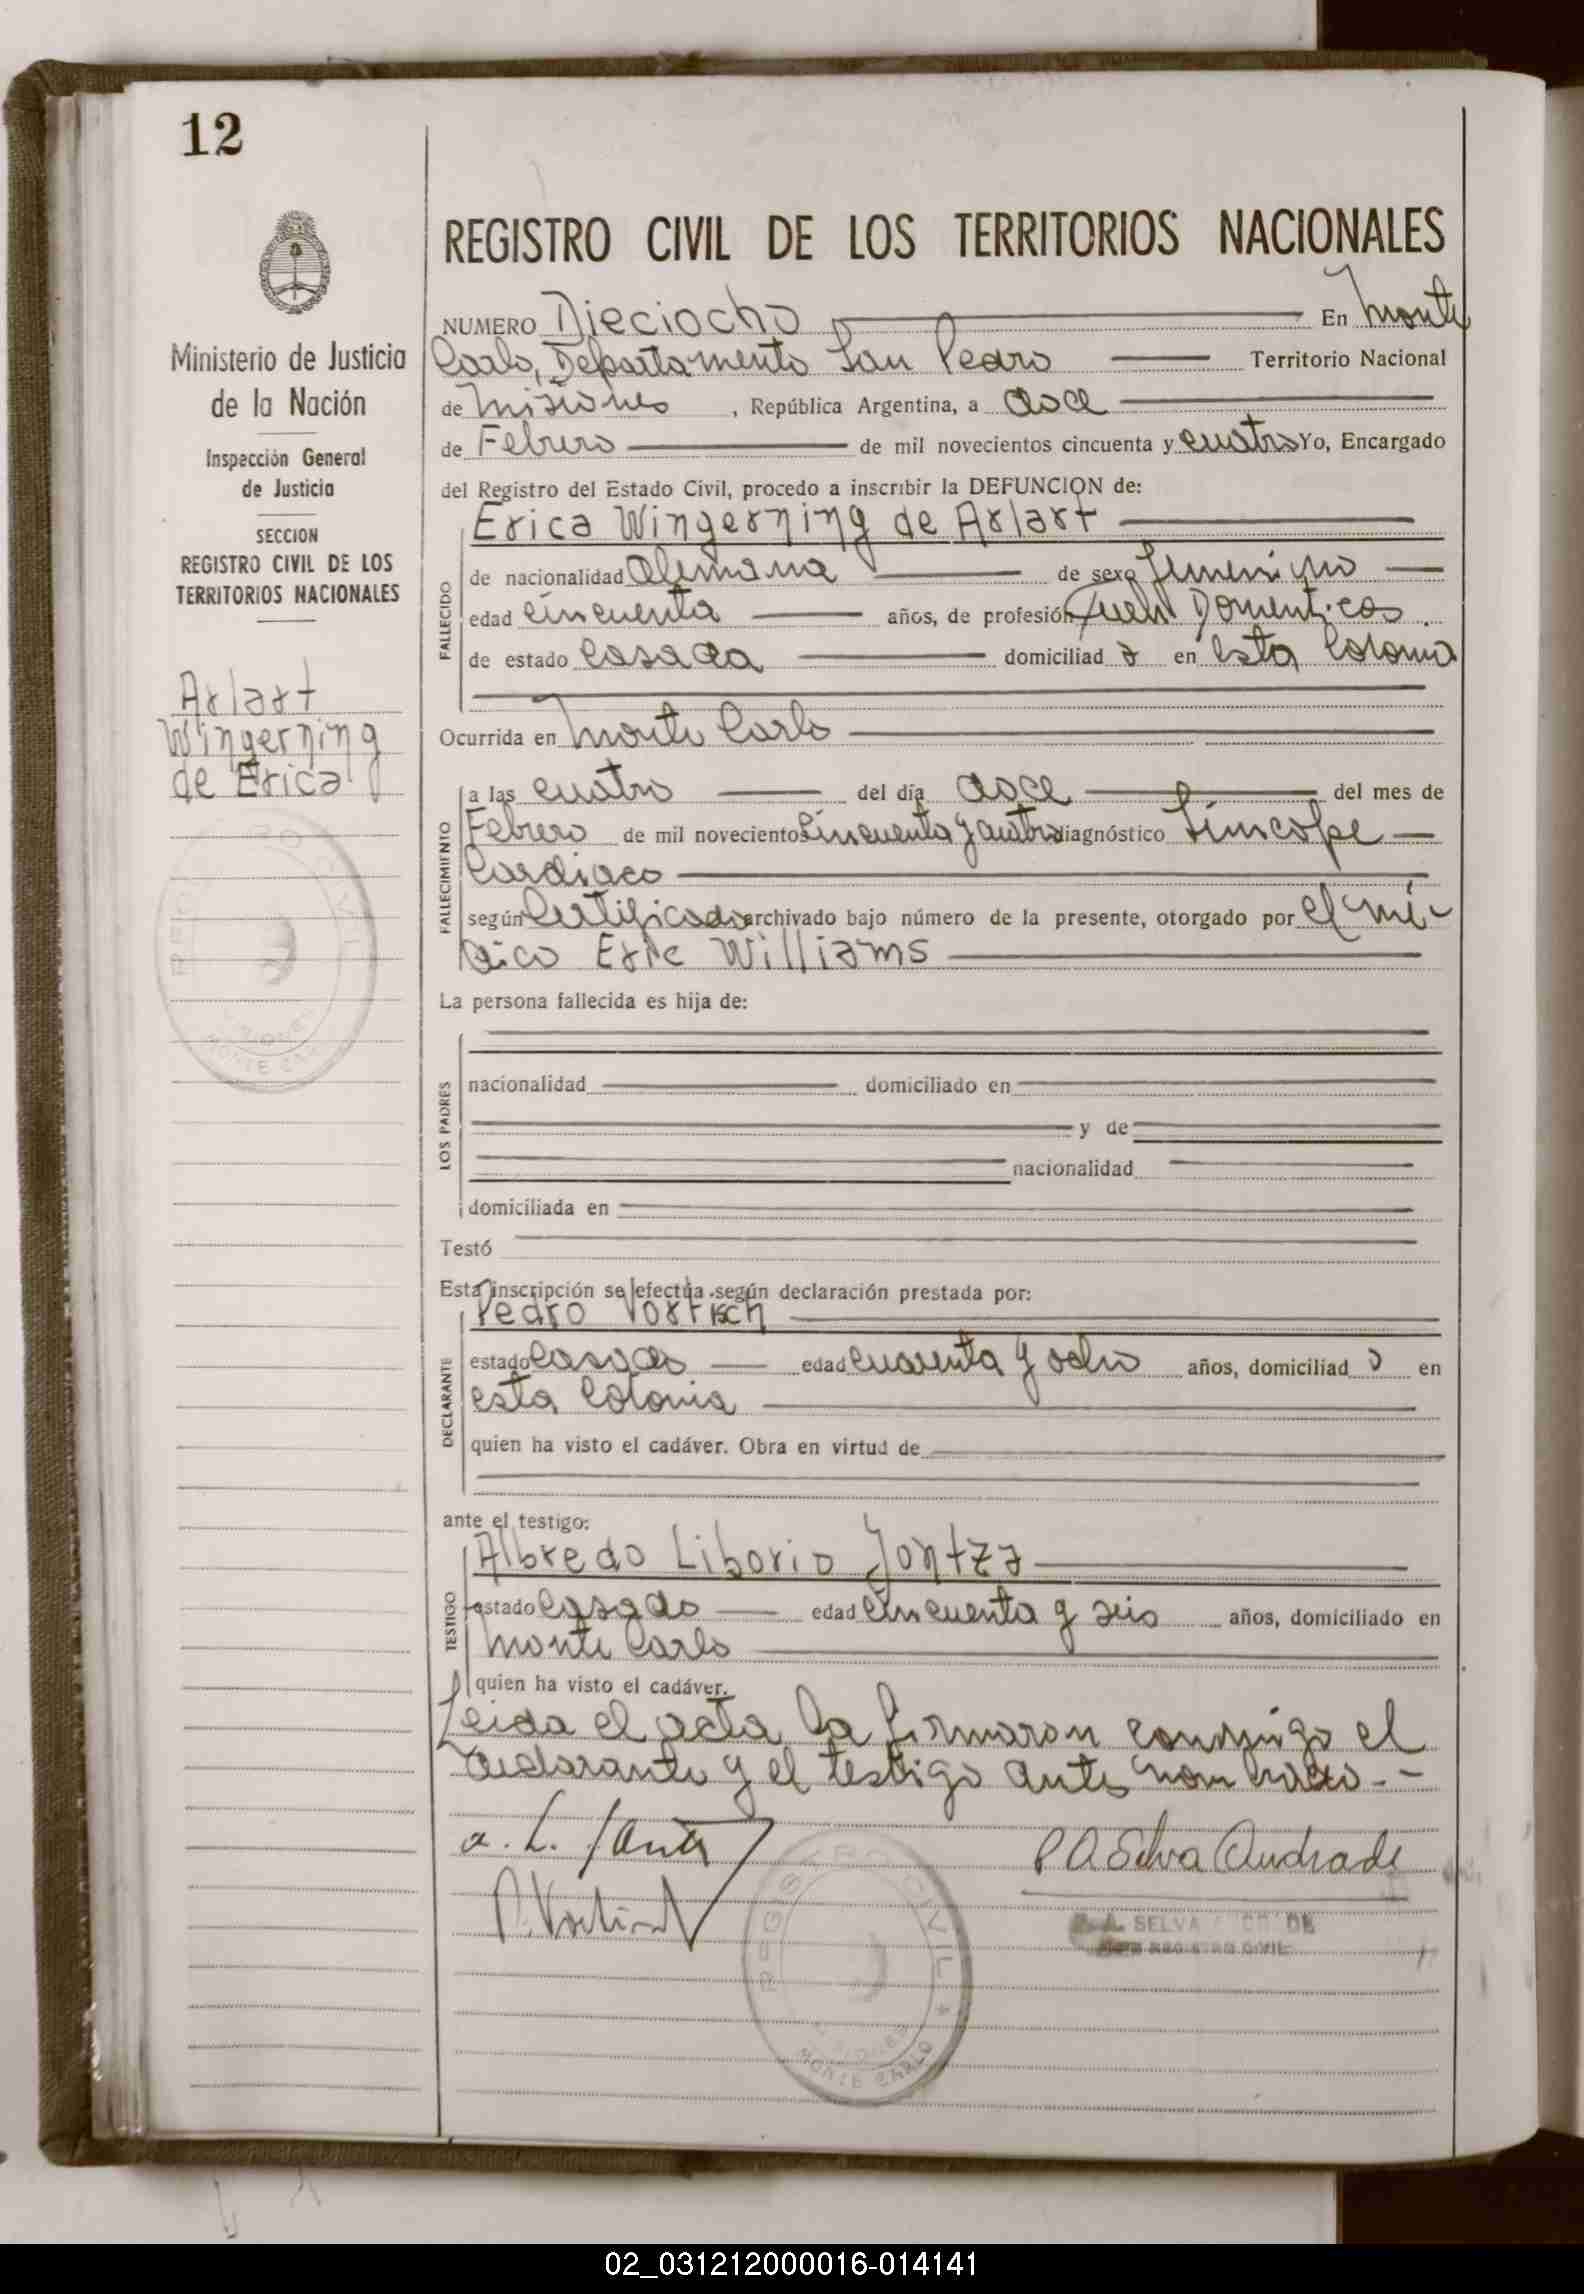 12
REGISTRO CIVIL DE LOS TERRITORIOS NACIONALES
Ministerio de Justicia
de la Nación
Inspección General
de Justicia
SECCION
REGISTRO CIVIL DE LOS
TERRITORIOS NACIONALES
Arlart
Wingerning
de Erica
NUMERO Dieciocho En Monte
Carlo, Departamento San Pedro Territorio Nacional
de Misiones, República Argentina, a doce
de Febrero de mil novecientos cincuenta y cuatro Yo, Encargado
del Registro del Estado Civil, procedo a inscribir la DEFUNCION de:
Erica Wingerning de Arlart
FALLECIDO
de nacionalidad alemana de sexo femenino
edad cincuenta años, de profesión Domesticos
de estado casada domiciliad a en esta Colonia
Ocurrida en Monte Carlo
FALLECIMIENTO
a las cuatro del día doce del mes de
Febrero de mil novecientos cincuenta y cuatro diagnóstico Sincope
Cardiaco
según Certificado archivado bajo número de la presente, otorgado por el mé-
dico Eric Williams
La persona fallecida es hija de:
LOS PADRES
nacionalidad domiciliado en
y de
nacionalidad
domiciliada en
Testó
Esta inscripción se efectúa según declaración prestada por:
Pedro Vortisch
DECLARANTE
estado casado edad cuarenta y ocho años, domiciliad o en
esta Colonia
quien ha visto el cadáver. Obra en virtud de
ante el testigo:
Albredo Liborio Jontza
TESTIGO
estado casado edad cincuenta y seis años, domiciliado en
Monte Carlo
quien ha visto el cadáver.
Leida el acta la firmaron conmigo el
declarante y el testigo antes nombrado.-
P A Selva Andrade
REGISTRO CIVIL
MISIONES
MONTE CARLO
02_031212000016-014141